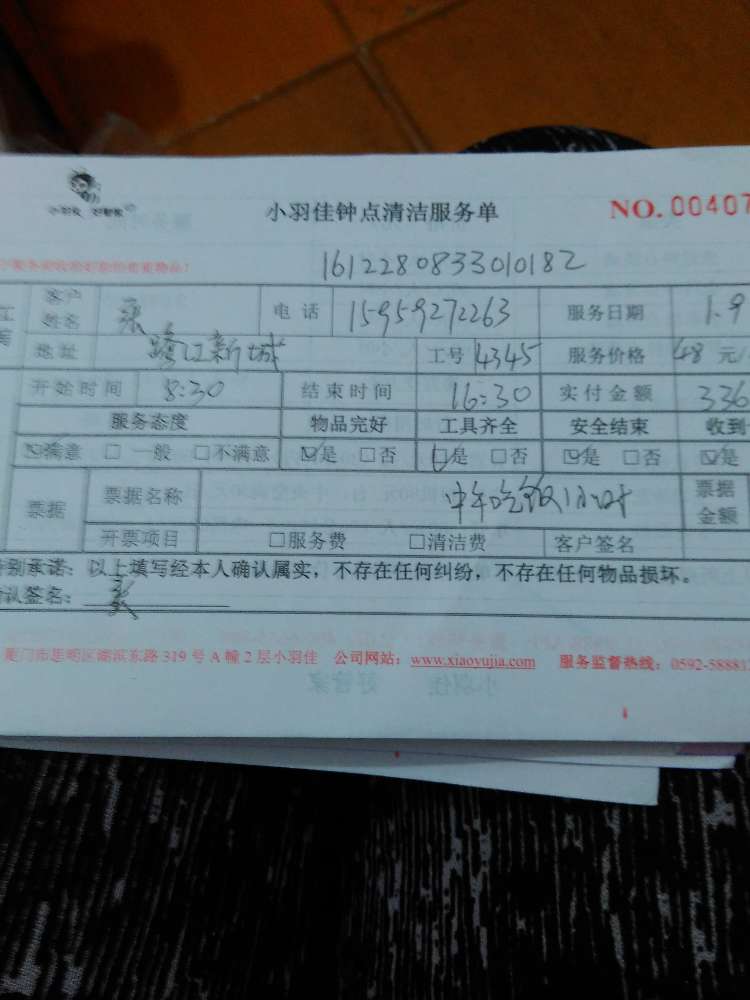 小羽佳钟点清洁服务单 NO. 00407
1612280833010182
客户姓名 电话 15959272263 服务日期 1.9
地址 新城 工号 4345 服务价格 48 元/
开始时间 8:30 结束时间 16:30 实付金额 336
服务态度 物品完好 工具齐全 安全结束 收到
☑满意 □一般 □不满意 ☑是 □否 ☑是 □否 ☑是 □否 ☑是
票据 票据名称 中午吃饭1小时 票据金额
开票项目 □服务费 □清洁费 客户签名
别承诺：以上填写经本人确认属实，不存在任何纠纷，不存在任何物品损坏。
认签名：
厦门市思明区湖滨东路 319 号 A 幢 2 层小羽佳 公司网站：www.xiaoyujia.com 服务监督热线：0592-58881
小羽佳 好管家